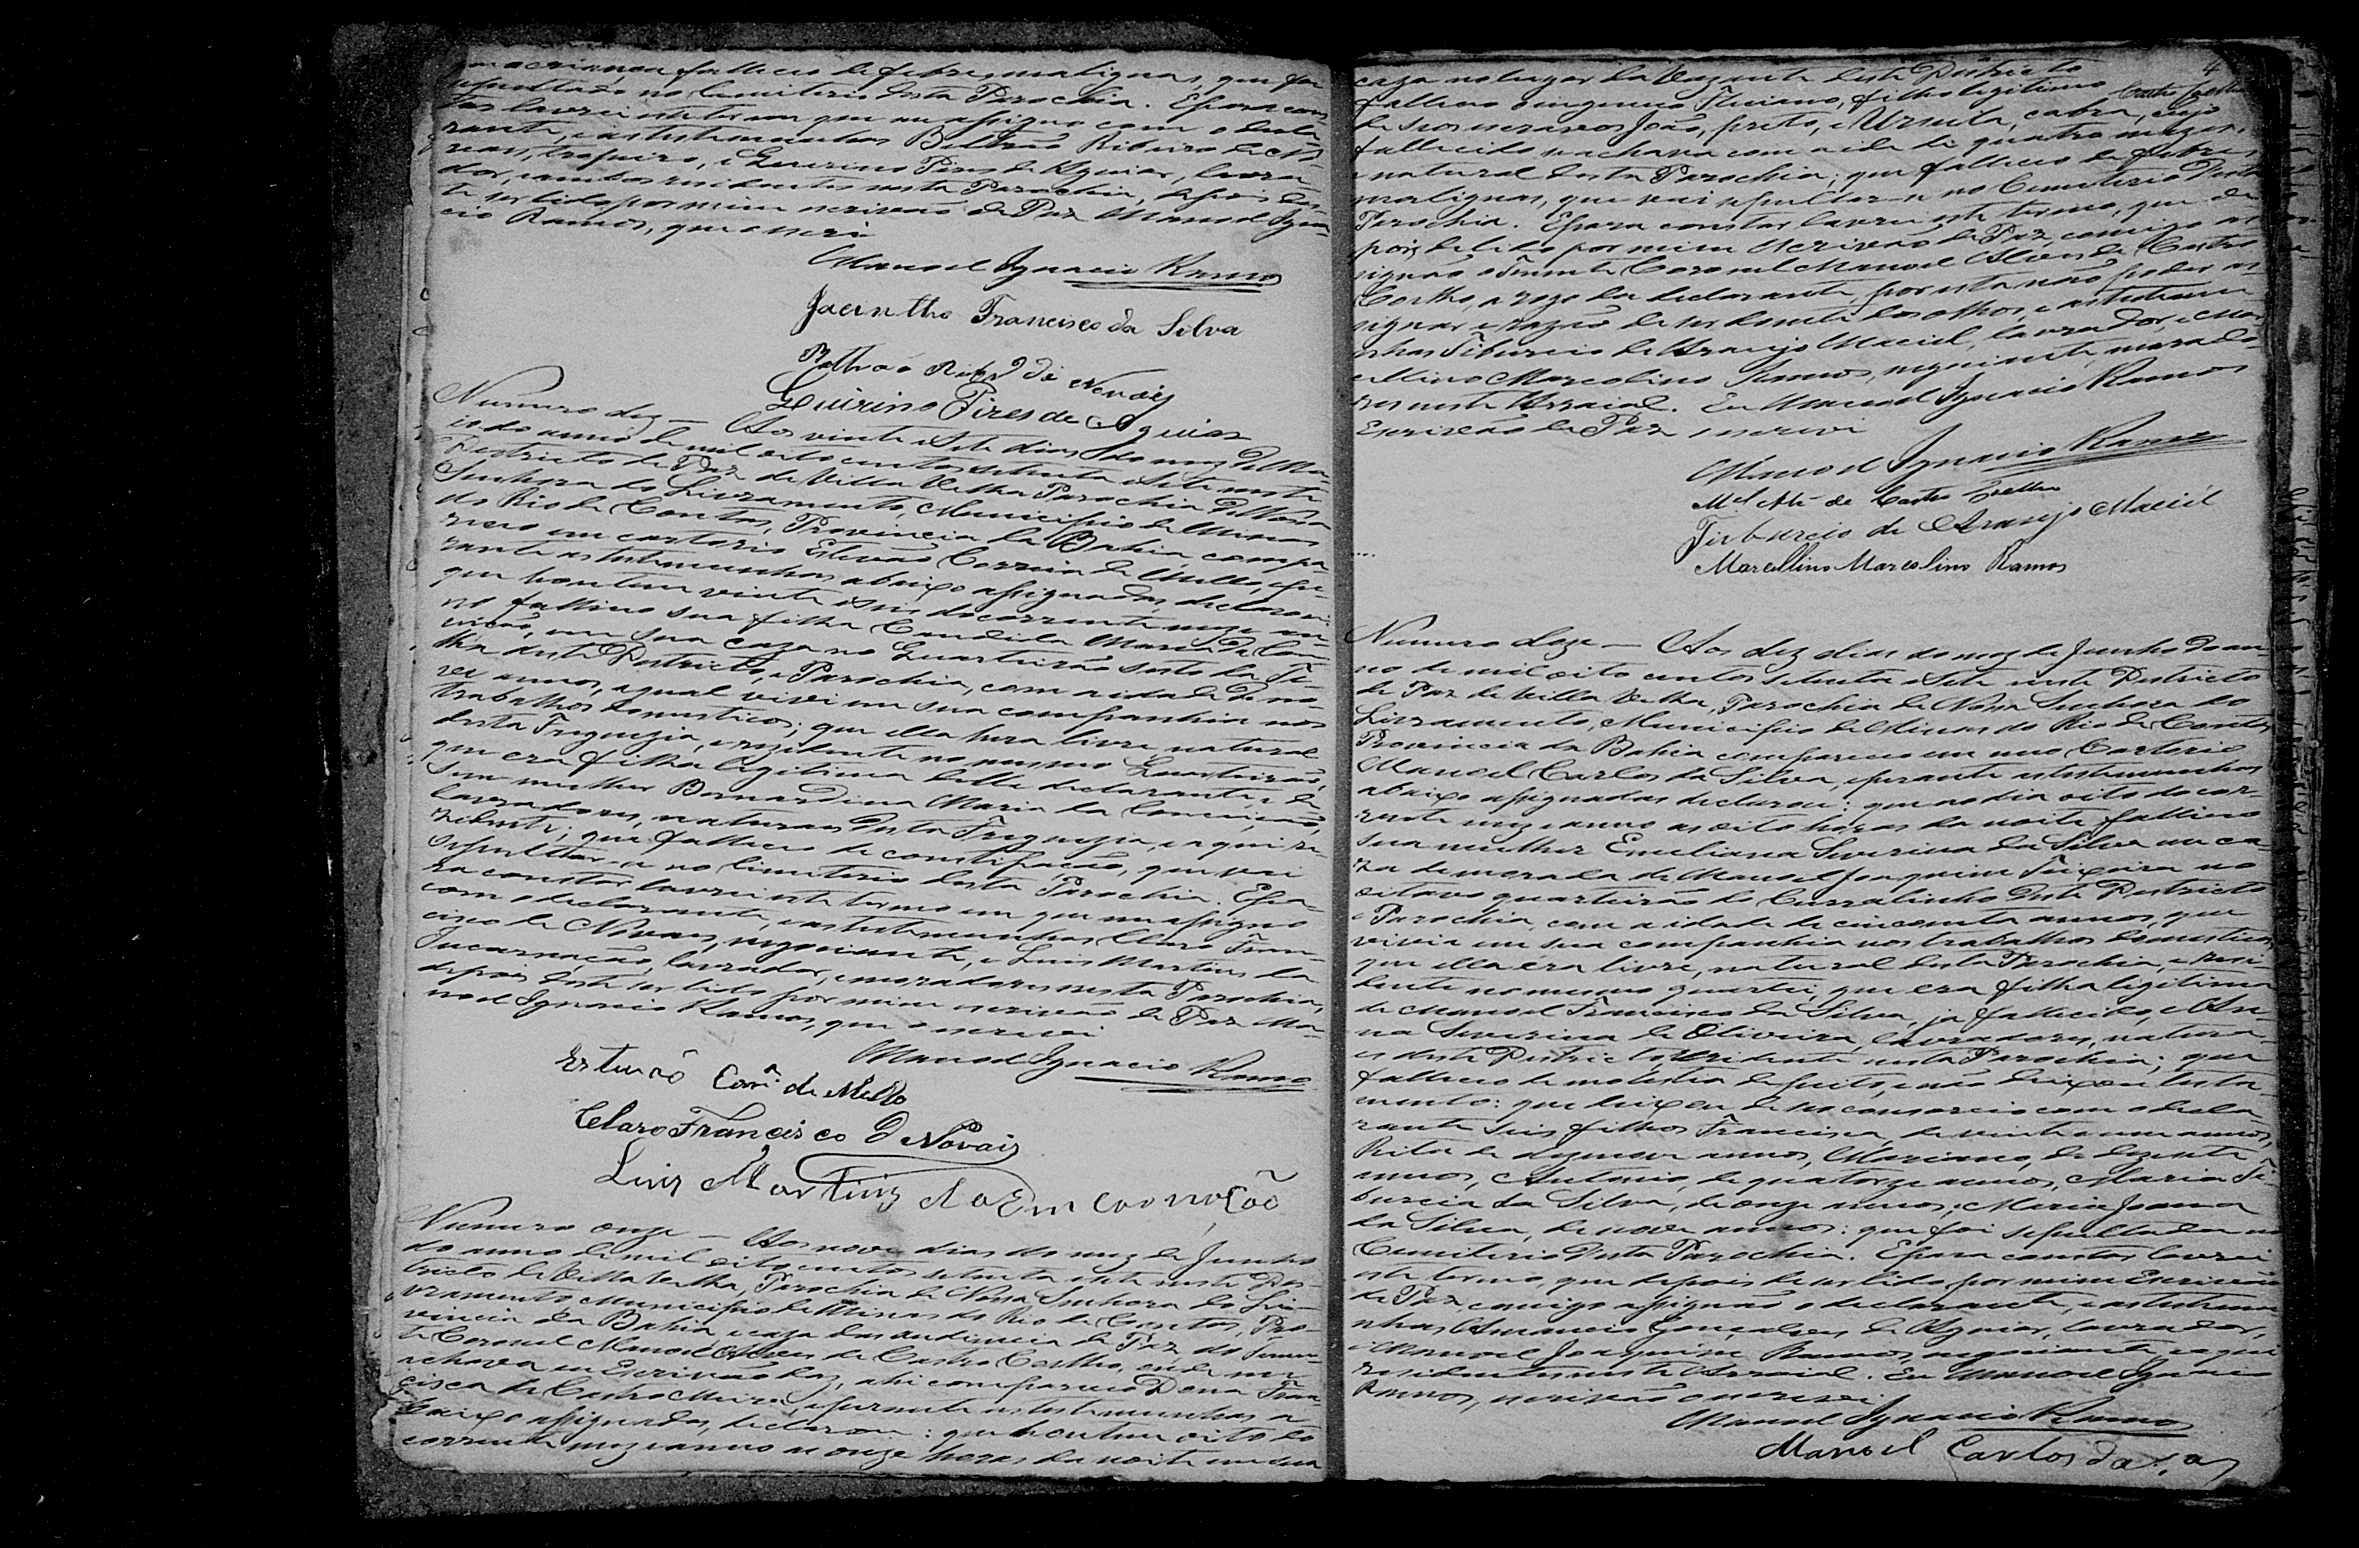 uma crianca falleceo de febres malignas, que foi
sepultado no Cemiterio desta Parochia. E para cons-
tar lavrei este termo em que me assigno com o decla-
rante, e as testemunhas Beltrão Ribeiro de No-
vais, tropeiro, e Quirino Pires de Aguiar, lavra-
dor, ambos residentes nesta Parochia, depois des-
te ser lido por mim escrivão de Paz Manoel Igna-
cio Ramos, que escrevi
Manoel Ignacio Ramos
Jacintho Francisco da Silva
Beltrão Ribr.º de Novais
Quirino Pires de Aguiar
Numero dez — Aos vinte e sete dias do mez de Ma-
io do anno de mil oito centos setenta e sete neste
Destricto de Paz de Villa Velha Parochia de Nossa
Senhora do Livramento, Municipio de Minas
do Rio de Contas, Provincia da Bahia, compa-
receo em cartorio Estevão Correia de Mello, e pe-
rante as testemunhas abaixo assignadas, declarou:
que hontem vinte e seis do corrente mez e an-
no falleceo sua filha Candida Maria da Con-
ceição, em sua caza no Quarteirão sesto da
deste Destricto, e Parochia, com a idade de no-
ve annos, a qual vivia em sua companhia nos
trabalhos domesticos; que ella hera livre natural
desta Freguezia, e rezidente no mesmo Quarteirão,
que era filha legitima delle declarante, e de
sua mulher Bernardina Maria da Conceição,
lavradores, naturaes desta Freguezia, e aqui re-
zidente; que falleceo de constipação, que vai
sepultar-se no Cimiterio desta Parochia. E pa-
ra constar lavrei este termo em que me assigno
com o declarante, e as testemunhas Claro Fran-
cisco de Novaes, negociante, e Luis Martins da
Incarnação, lavrador, e moradores nesta Parochia,
depois deste ser lido por mim escrivão de Paz Ma-
noel Ignacio Ramos, que o escrevi
Manoel Ignacio Ramos
Estevão Corr.ª de Mello
Claro Francisco de Novais
Luiz Martins da Emcarnação
Numero onze — Aos nove dias do mez de Junho
do anno de mil oito centos setenta e sete neste Des-
tricto de Villa Velha, Parochia de Nossa Senhora do Li-
vramento Municipio de Minas do Rio de Contas, Pro-
vincia da Bahia, e caza das audiencia de Paz do Tenen-
te Coronel Manoel Alves de Castro Coelho, onde me
achava eu Escrivão de Paz, ahi compareceo Dona Fran-
cisca de Castro Meira, e perante as testemunhas a-
baixo assignadas, declarou: que hontem oito do
corrente mez e anno as onze horas da noite em sua
4
caza no lugar da Vazante deste Destricto
falleceo o ingenuo Floriano, filho legitimo
de seos escravos João, preto, e Ursula, cabra, cujo
fallecido se achava com a ide de quatro mezes,
e natural desta Parochia; que falleceo de febres
malignas, que vai sepultar-se no Cemiterio desta
Parochia. E para constar lavrei este termo, que de-
pois de lido por mim Escrivão de Paz, comigo as-
signão o Tenente Coronel Manoel Alves de Castro
Coelho, a rogo da declarante, por esta não poder as-
signar e razão de ser doente dos olhos, e as testemu-
nhas Tiburcio de Araujo Maciel, lavrador, e Mar-
cellino Marcolino Ramos, negociante, morado-
res neste Arraial. Eu Manoel Ignacio Ramos
Escrivão de Paz escrevi
Manoel Ignacio Ramos
M.el Alz. de Castro Coelho
Tiburcio de Araujo Maciel
Marcellino Marcolino Ramos
Numero doze — Aos dez dias do mez de Junho do an-
no de mil oito centos setenta e sete neste Destricto
de Paz de Villa Velha, Parochia de Nossa Senhora do
Livramento, Municipio de Minas do Rio de Contas
Provincia da Bahia compareceo em meo Cartorio
Manoel Carlos da Silva, e perante as testemunhas
abaixo assignadas declarou: que no dia oito do cor-
rente mez e anno as oito horas da noite falleceo
sua mulher Emeliana Severina da Silva em ca-
za de morada de Manoel Joaquim Teixeira no
oitavo quarteirão do Curralinho deste Destricto
e Parochia, com a idade de cincoenta annos, que
vivia em sua companhia nos trabalhos domesticos,
que ella era livre, natural desta Parochia, e resi-
dente no mesmo quarteirão, que era filha legitima
de Manoel Francisco da Silva, ja fallecido, e An-
na Severina de Oliveira, lavradores, natura-
es deste Destricto, e residente nesta Parochia; que
falleceo de molestia de peito, e não deixou testa-
mento: que deixou de seo consorcio com o decla-
rante seis filhos Francisca, de vinte e um annos,
Rita de dezenove annos, Marianno, de dezesete
annos, Antonio, de quatorze annos, Maria Ti-
burcia da Silva, de onze annos, Maria Joanna
da Silva, de nove annos: que foi sepultada no
Cemiterio desta Parochia. E para constar lavrei
este termo, que depois de ser lido por mim Escrivão
de Paz, comigo assignão o declarante, e as testemu-
nhas Amancio Gonçalves de Aguiar, lavrador,
e Manoel Joaquim Ramos, negociante, e aqui
residentes neste Arraial. Eu Manoel Ignacio
Ramos, escrivão o escrevi
Manoel Ignacio Ramos
Manoel Carlos da S.ª